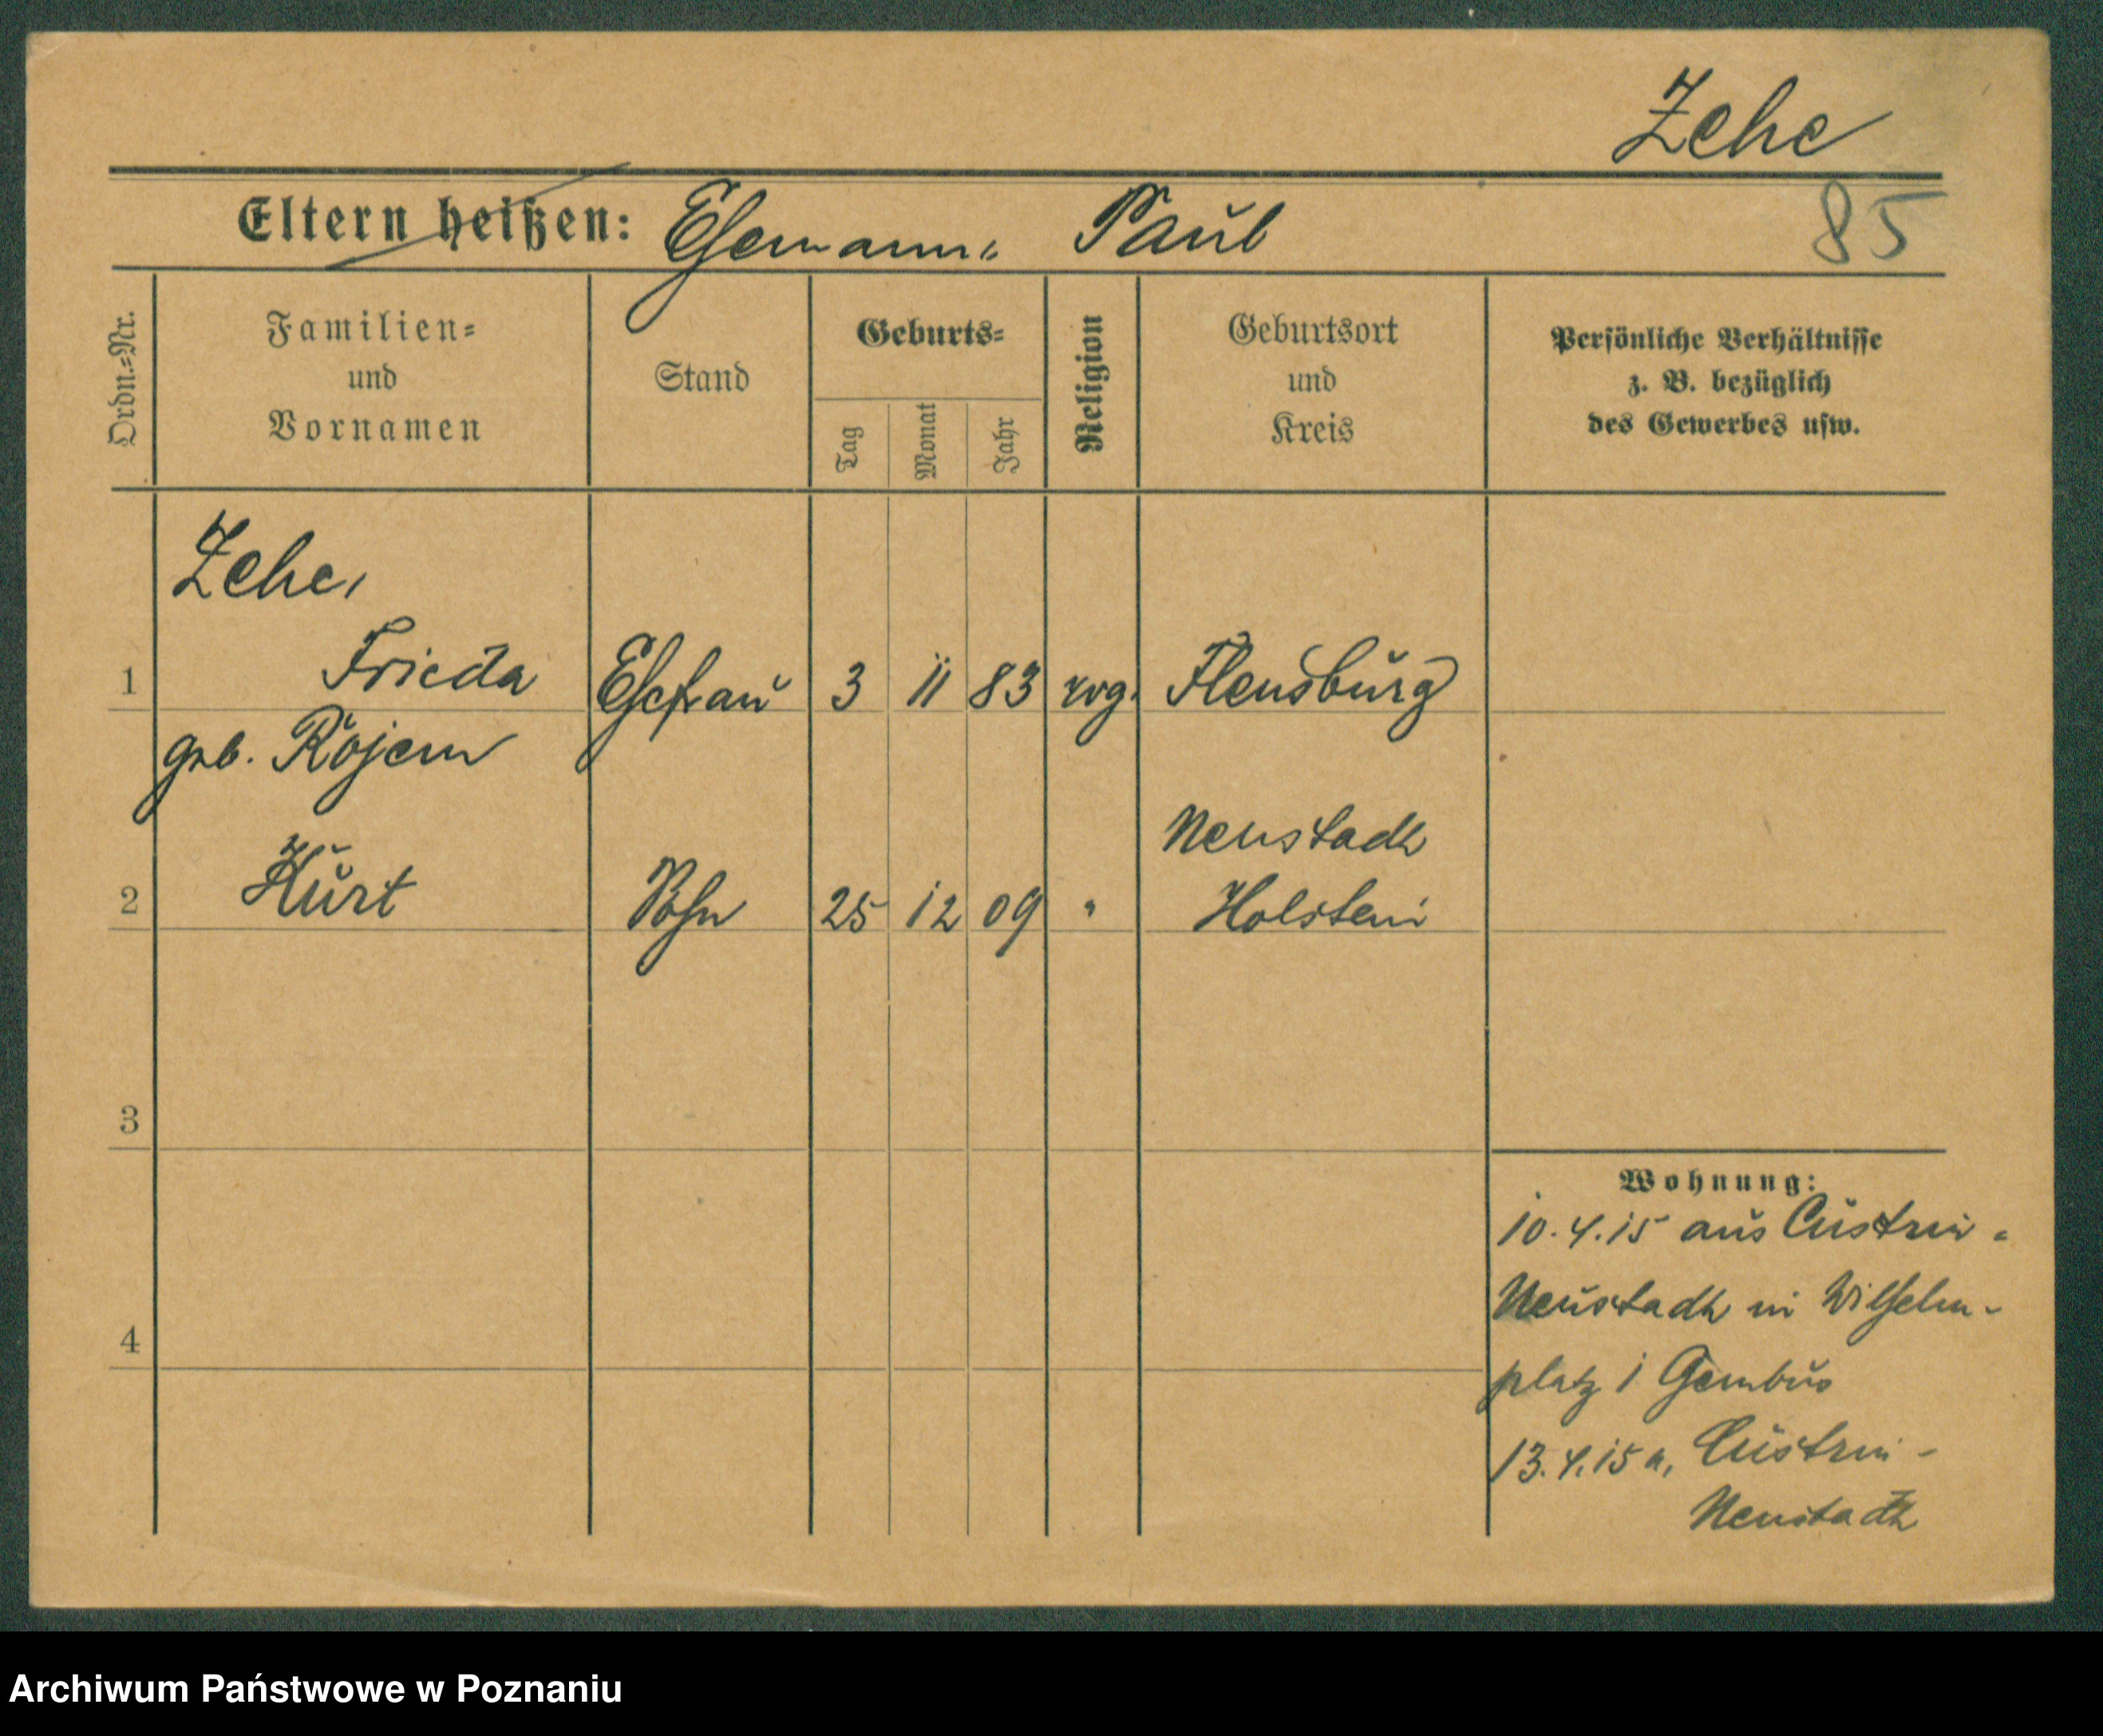 Zehe
Eltern heißen: Ehemann: Paul
85
Ordn.=Nr.
Familien=
und
Vornamen
Stand
Geburts=
Tag
Monat
Jahr
Religion
Geburtsort
und
Kreis
Persönliche Verhältnisse
z. B. bezüglich
des Gewerbes usw.
Zehe,
1 Frieda Ehefrau 3 11 83 evg. Flensburg
geb. Röjem
Neustadt
2 Kurt Sohn 25 12 09 " Holstein
3
4
Wohnung:
10.4.15 aus Cüstrin-
Neustadt in Wilhelm-
platz 1 Gembus
13.4.15 n. Cüstrin-
Neustadt
Archiwum Państwowe w Poznaniu